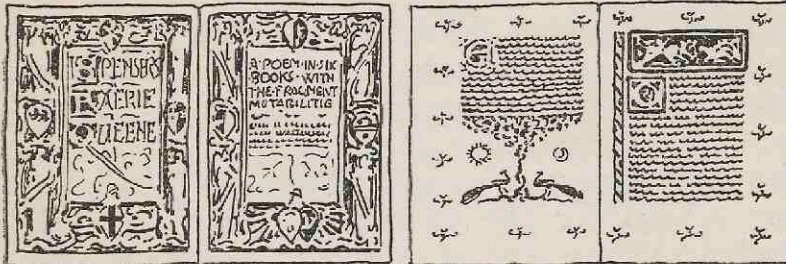 SPENSERS
FAERIE
QUEENE
A·POEM·IN·SIX
BOOKS·WITH
THE·FRAGMENT
MUTABILITIE